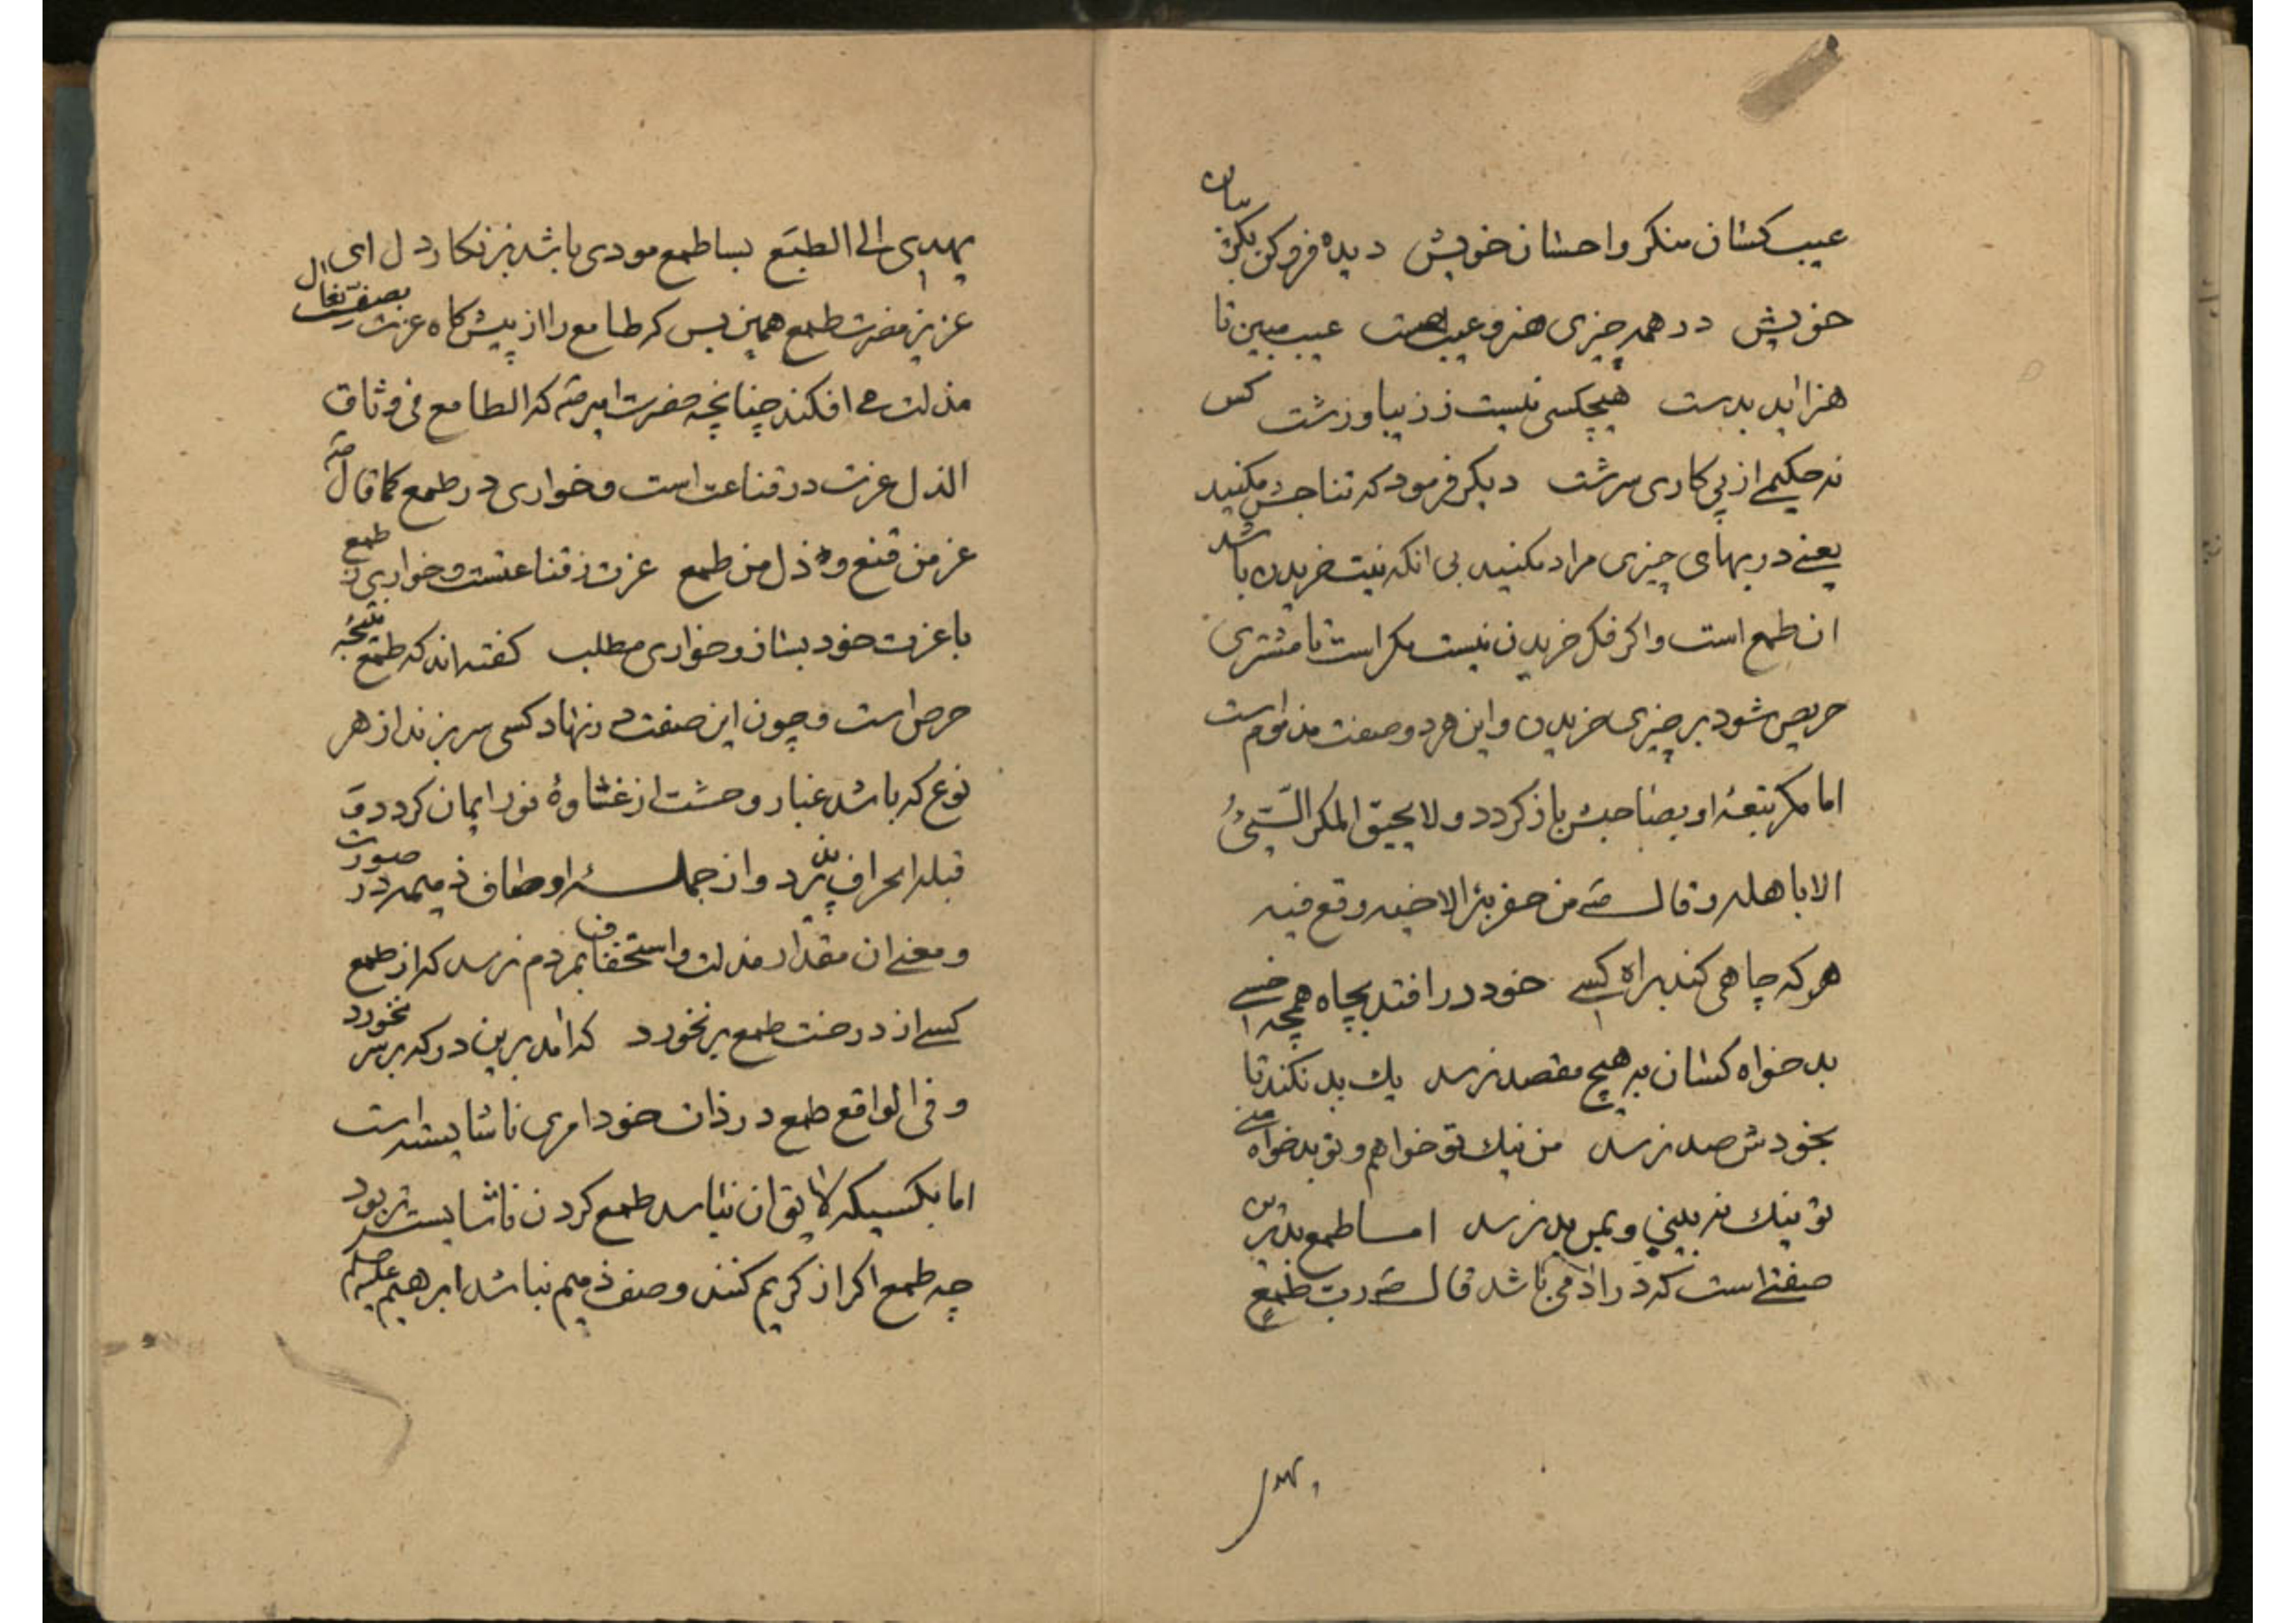 عیب کسان منکر واحسان خویش دیده فروکن بکریبان
خویش در همه چیزی هنر و عیب هست عیب مبین تا
هنر اید بدست هیچکسی نیست ز زیبا و زشت کس
نه حکیمے از پی کاری سرشت دیکر فرمود که تناجش مکنید
یعنے در بهای چیزی مراد مکنید بی انکه نیت خریدن باشد
ان طمع است واکر فکر خریدن نیست مکر است تا مشتری
حریص شود بر چیزی خریدن واین هر دو صفت مذموم است
اما مکر بتعهٔ او بصاحبش باز کردد ولا یحیق المکر السّیّئُ
الا باهله وقال صَه من حفر بئرا لاخیه وقع فیه
هر که چاهی کند براه کسے خود در افتد بچاه همچه خسے
بد خواه کسان به هیچ مقصد نرسد یك بد نکند تا
بخودش صد نرسد من نیك تو خواهم و تو بدخواه منے
تو نیك نه بینی و بمن بد نرسد اما طمع بدترین
صفتے است که در ادمی باشد قال صَه رب طمعٍ
یهدی
یهدی الے الطبَع بسا طمع مودی باشد بزنکار دل ای
عزیز مضرت طمع همین بس که طامع را از پیشکاه عزت بصف نعال
مذلت مے افکند چنانچه حضرت امیر صَه که الطامع فی وثاق
الذل عزت در قناعت است وخواری در طمع کما قال صَه
عز من قنع و ذل من طمع عزت ز قناعتست وخواری ز طمع
با عزت خود بساز وخواری مطلب کفته اند که طمع نتیجهٔ
حرص است وچون این صفت در نهاد کسی سر بر زند از هر
نوع که باشد غبار وحشت از غشاوهٔ نور ایمان کردد و
قبله انحراف پذیرد واز جملهٔ اوصاف ذمیمه در صورت
ومعنے ان مقدار مذلت واستخفاف بمردم نرسد که از طمع
کسے از درخت طمع بر نخورد که امد برین در که بر سر نخورد
وفی الواقع طمع در ذات خود امری ناشایسته است
اما بکسیکه لایق ان نباشد طمع کردن ناشایسته تر بود
چه طمع اکر از کریم کنند وصف ذمیم نباشد ابرهیم علیه